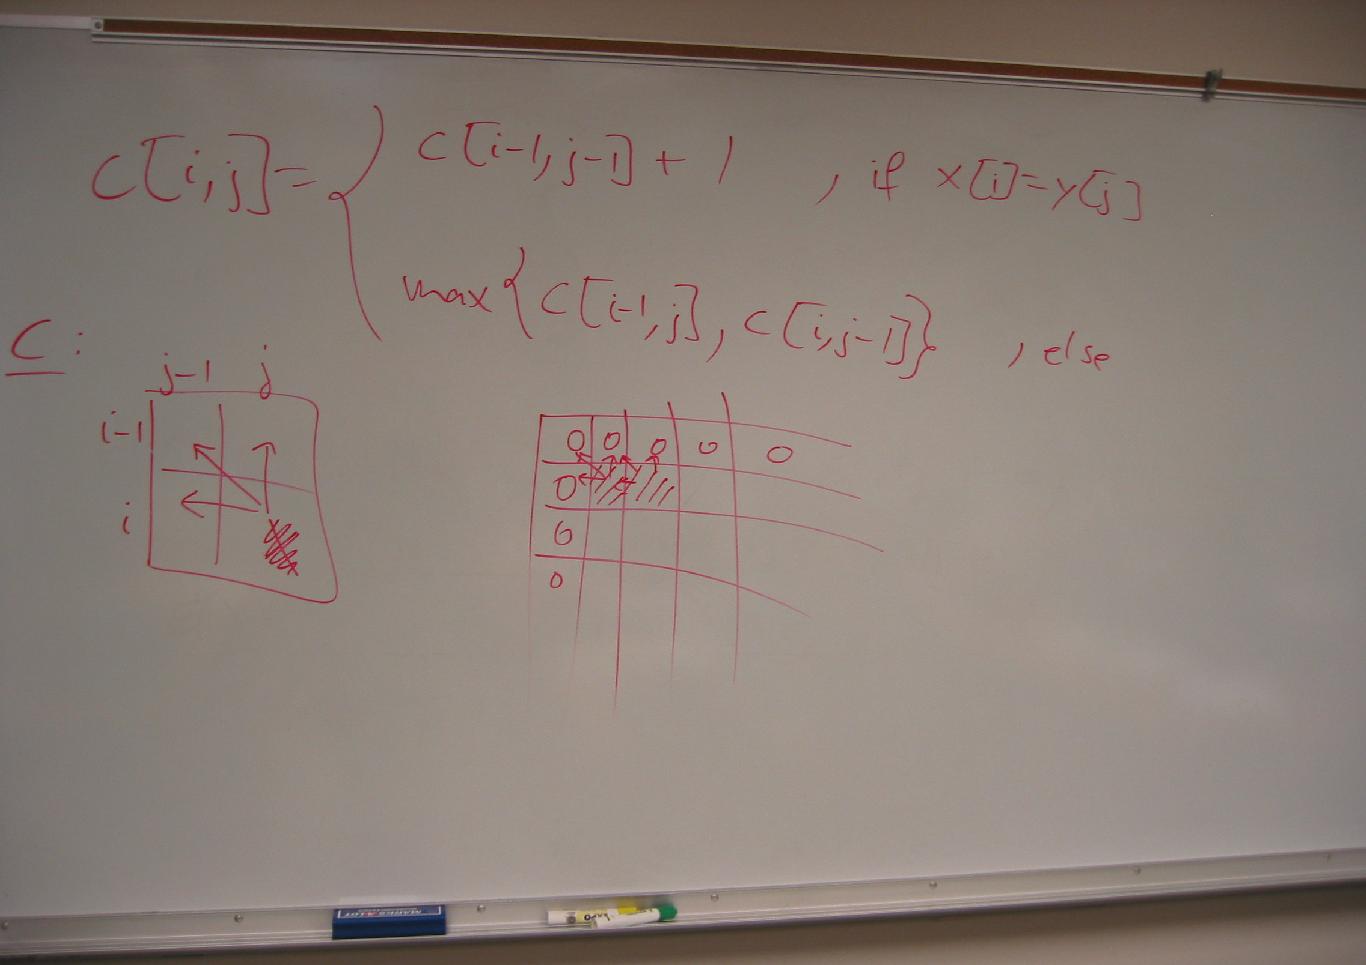 C[i,j]= { C[i-1,j-1] + 1 , if x[i]=y[j]
max{C[i-1,j], C[i,j-1]} , else
C:
j-1 j
i-1
i
0 0 0 0 0
0
0
0
EXPO